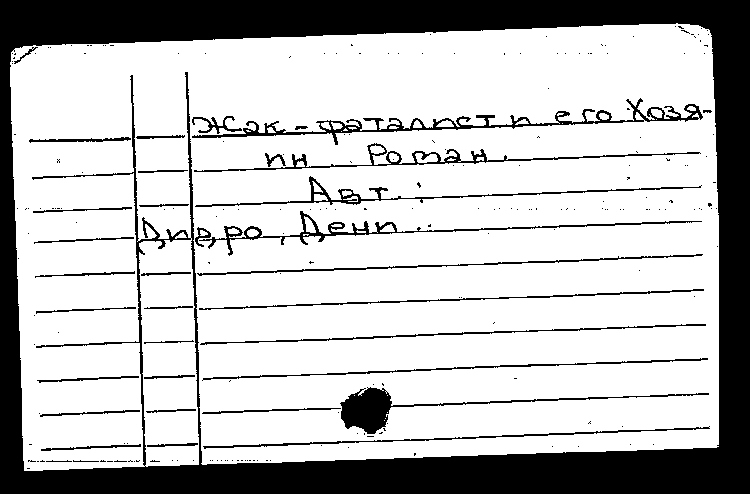 Жак-фаталист и его Хозя-
ин Роман.
Авт.:
Дидро, Дени..